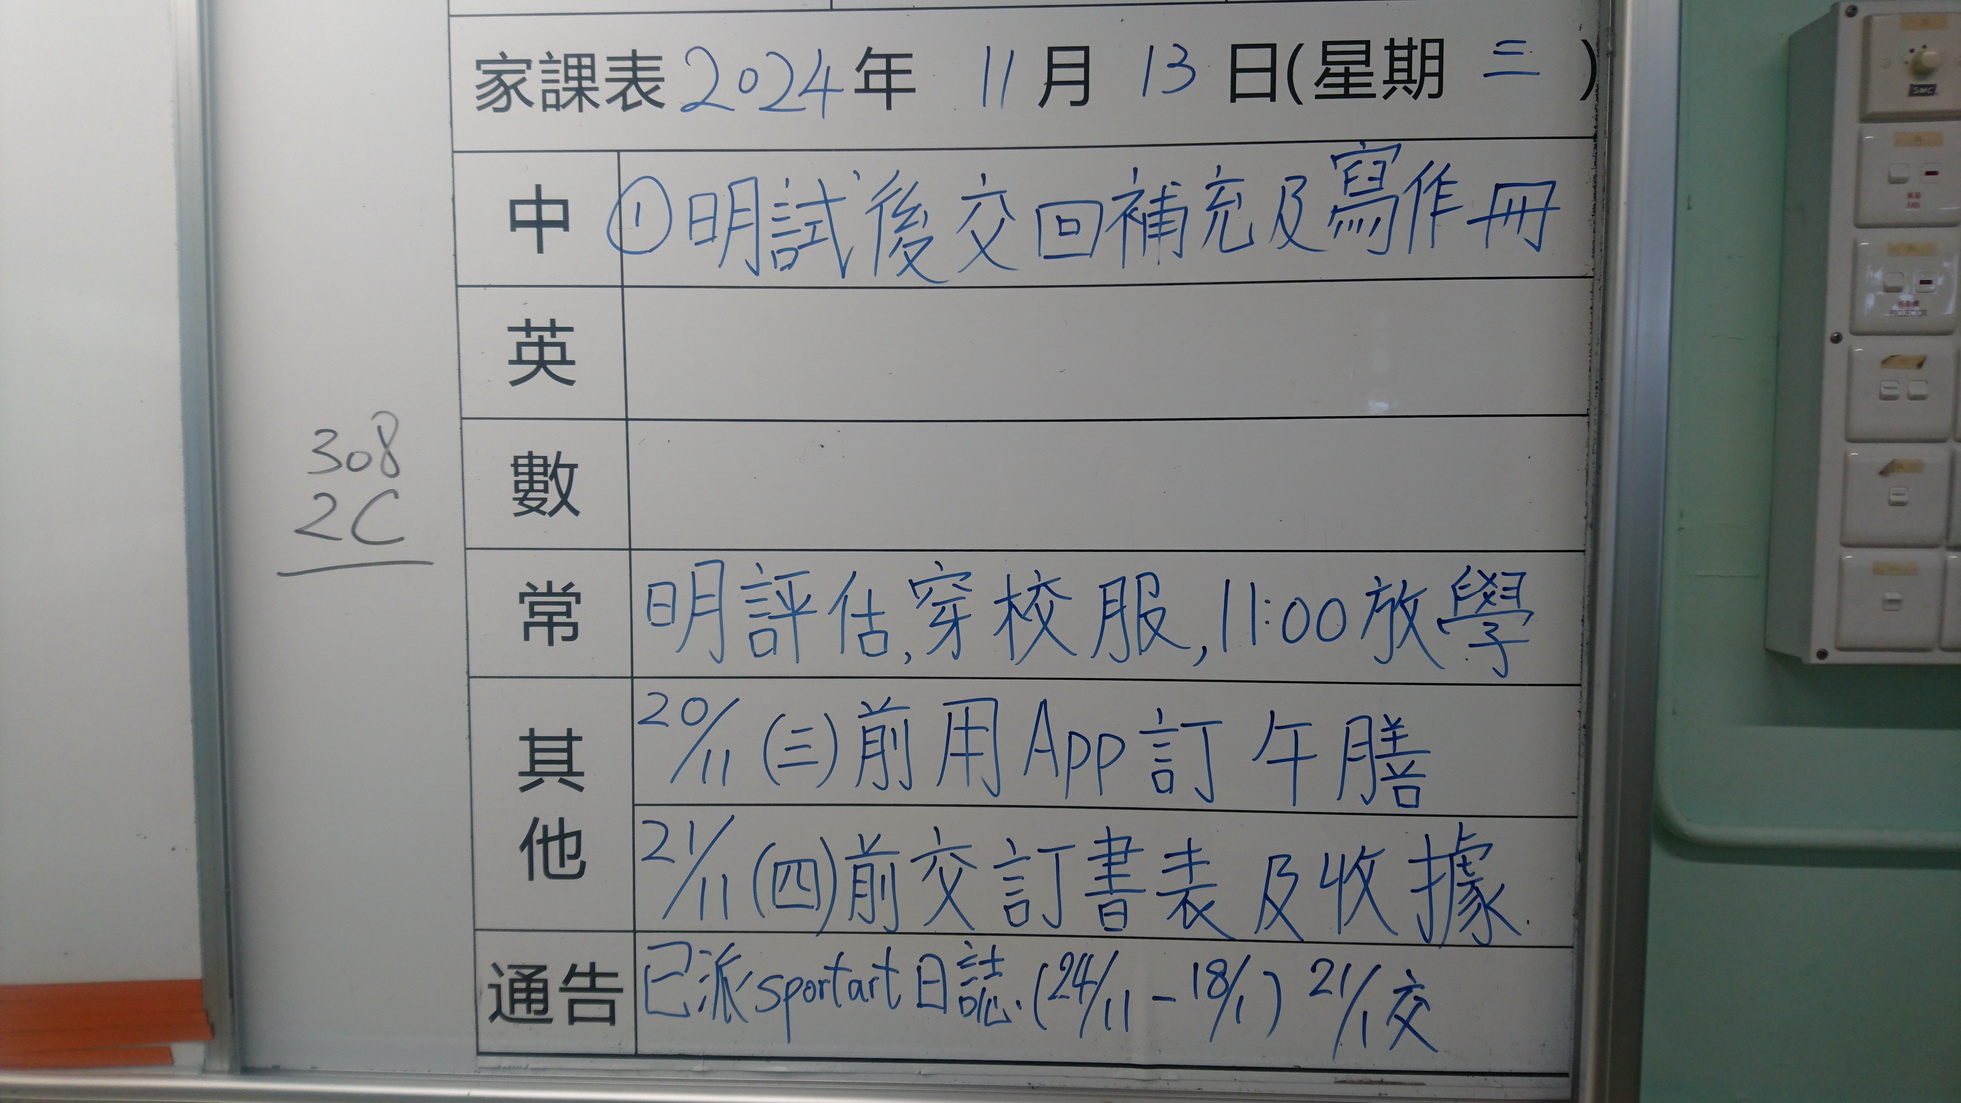 家課表 2024 年 11 月 13 日(星期 三 )
中 ①明試後交回補充及寫作冊
英
數
308
2C
常 明評估,穿校服,11:00放學
其他 20/11 (三)前用App訂午膳
21/11 (四)前交訂書表及收據.
通告 已派sportart日誌.(24/11-18/1) 21/1交